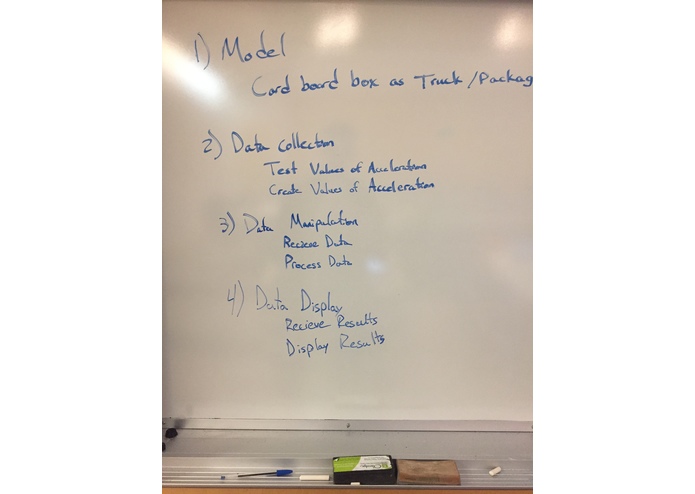 1) Model
Card board box as Truck/Packag
2) Data collection
Test Values of Acceleration
Create Values of Acceleration
3) Data Manipulation
Recieve Data
Process Data
4) Data Display
Recieve Results
Display Results